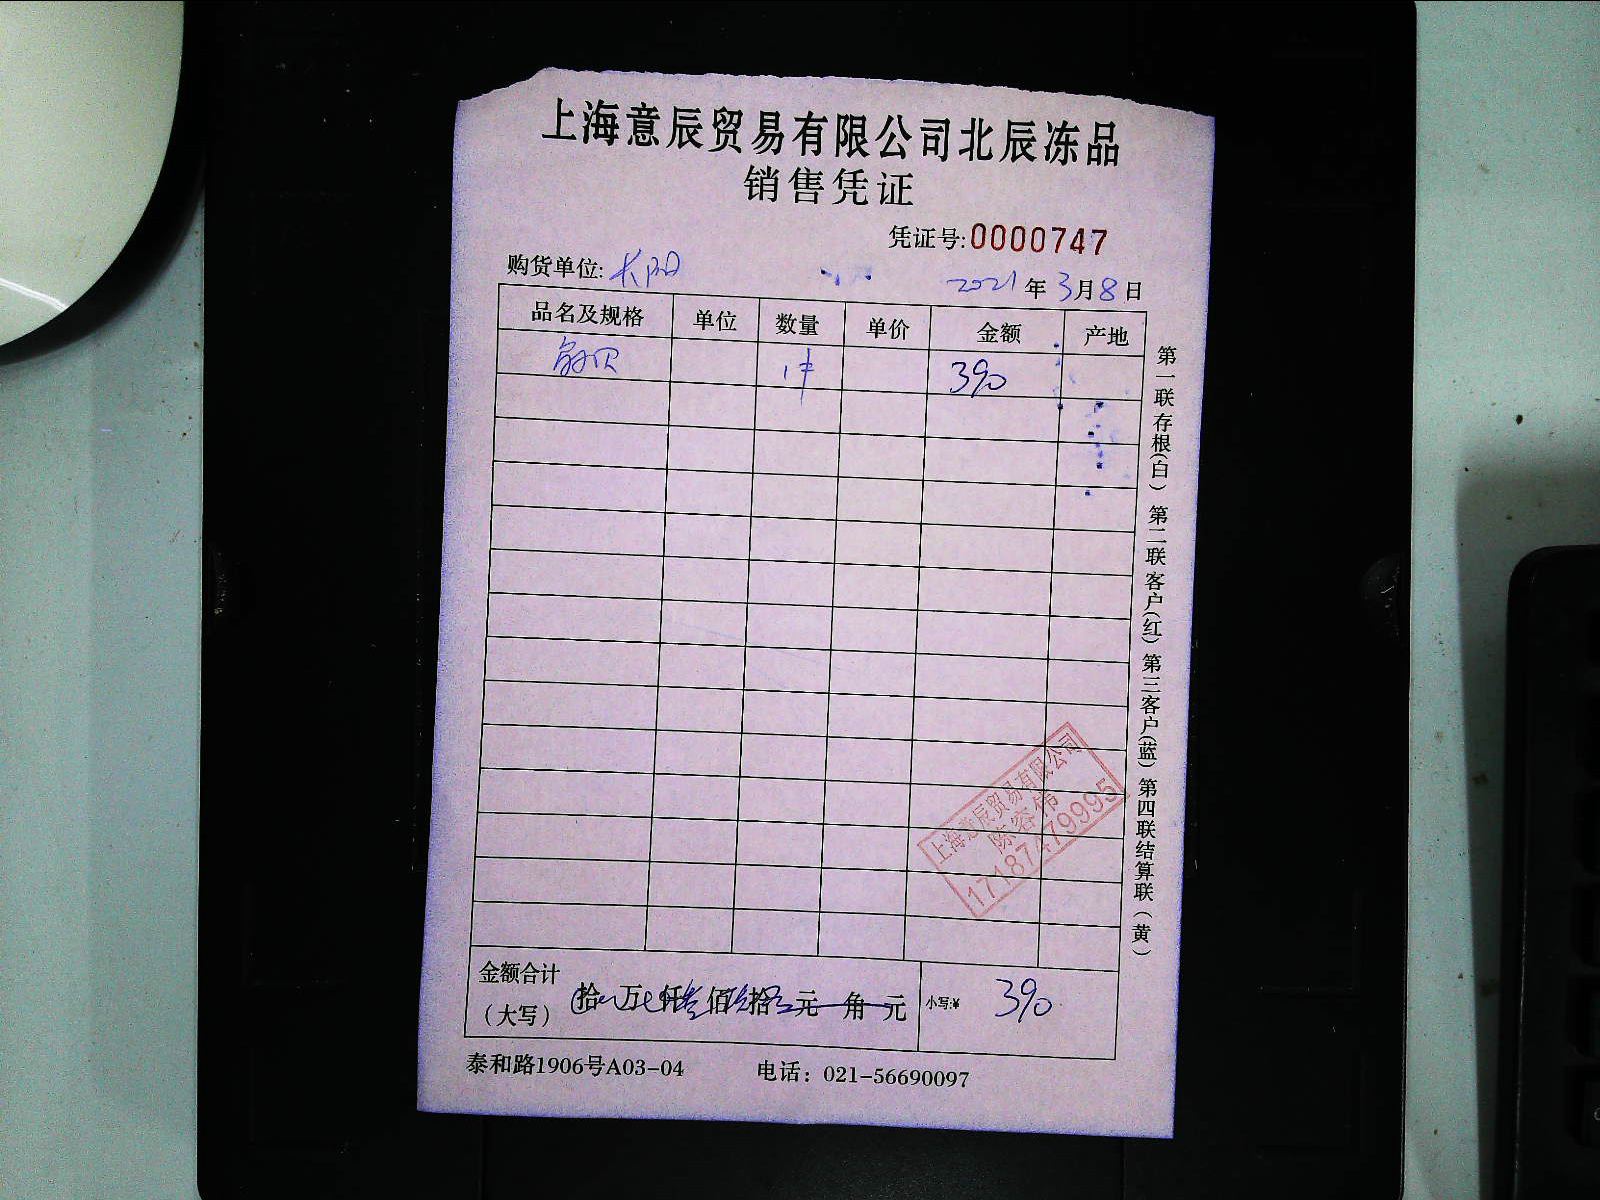 上海意辰贸易有限公司北辰冻品
销售凭证
凭证号:0000747
购货单位:长阳
2021年3月8日
品名及规格 单位 数量 单价 金额 产地
贝 1件 390
第一联存根(白) 第二联客户(红) 第三客户(蓝) 第四联结算联(黄)
上海意辰贸易有限公司
陈容伟
17187479995
金额合计
(大写) 拾 万 仟叁佰玖拾 元 角 元 小写:¥ 390
泰和路1906号A03-04 电话:021-56690097